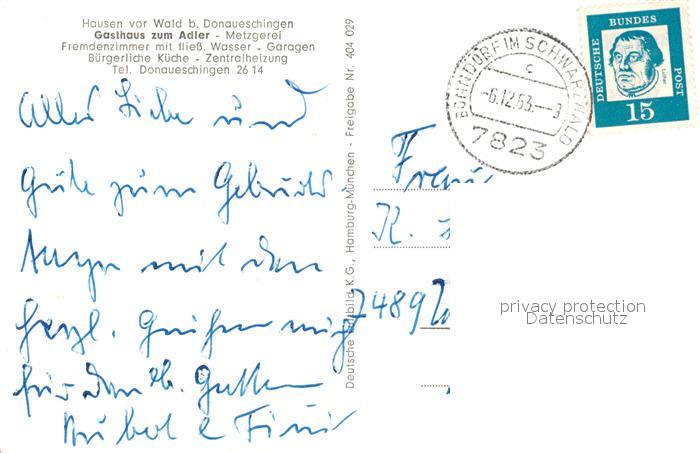 Hausen vor Wald b. Donaueschingen
Gasthaus zum Adler - Metzgerei
Fremdenzimmer mit fließ. Wasser - Garagen
Bürgerliche Küche - Zentralheizung
Tel. Donaueschingen 26 14
Alles Liebe und
Gute zum
mit den
herzl. Grüßen
für den Gatten
Deutsche K.G., Hamburg-München - Freigabe Nr. 404 029
BONNDORF IM SCHWARZWALD
c
-6.12.63.--9
7823
DEUTSCHE BUNDES POST
Luther
15
Frau
K.
7489
privacy protection
Datenschutz